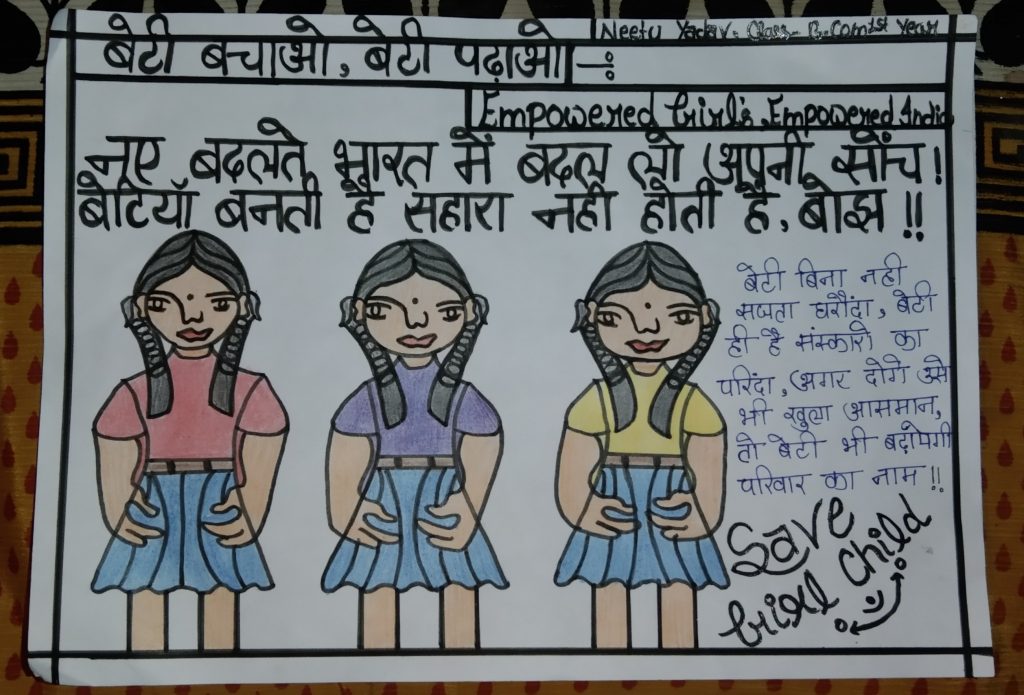 Neetu Yadav. Class- B.Com 1st Year
बेटी बचाओ, बेटी पढ़ाओ :-
Empowered Girl's, Empowered India
नए बदलते भारत में बदल लो अपनी सोंच!
बेटियाँ बनती है सहारा नही होती है, बोझ !!
बेटी बिना नही
सजता घरौंदा, बेटी
ही है संस्कारो का
परिंदा, अगर दोगे उसे
भी खुला आसमान,
तो बेटी भी बढ़ायेगी
परिवार का नाम !!
Save
Girl Child